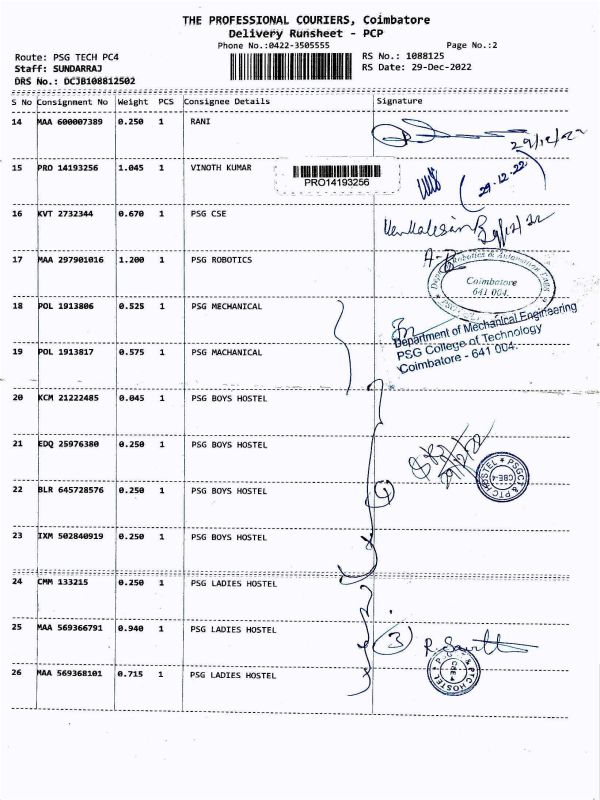 THE PROFESSIONAL COURIERS, Coimbatore
Delivery Runsheet - PCP
Phone No.:0422-3505555 Page No.:2
Route: PSG TECH PC4 RS No.: 1088125
Staff: SUNDARRAJ RS Date: 29-Dec-2022
DRS No.: DCJB108812502
S No Consignment No Weight PCS Consignee Details Signature
14 MAA 600007389 0.250 1 RANI
29/12/22
15 PRO 14193256 1.045 1 VINOTH KUMAR
PRO14193256
29.12.22
16 KVT 2732344 0.670 1 PSG CSE
Venkatesan
29/12/22
17 MAA 297901016 1.200 1 PSG ROBOTICS
Robotics & Automation
Coimbatore
641 004.
18 POL 1913806 0.525 1 PSG MECHANICAL
Department of Mechanical Engineering
PSG College of Technology
Coimbatore - 641 004.
19 POL 1913817 0.575 1 PSG MACHANICAL
20 KCM 21222485 0.045 1 PSG BOYS HOSTEL
21 EDQ 25976380 0.250 1 PSG BOYS HOSTEL
29/12/22
PSGCT & PTC HOSTEL
CBE-4
22 BLR 645728576 0.250 1 PSG BOYS HOSTEL
4
23 IXM 502840919 0.250 1 PSG BOYS HOSTEL
24 CMM 133215 0.250 1 PSG LADIES HOSTEL
25 MAA 569366791 0.940 1 PSG LADIES HOSTEL
3
26 MAA 569368101 0.715 1 PSG LADIES HOSTEL
& PTC HOSTEL
CBE-4